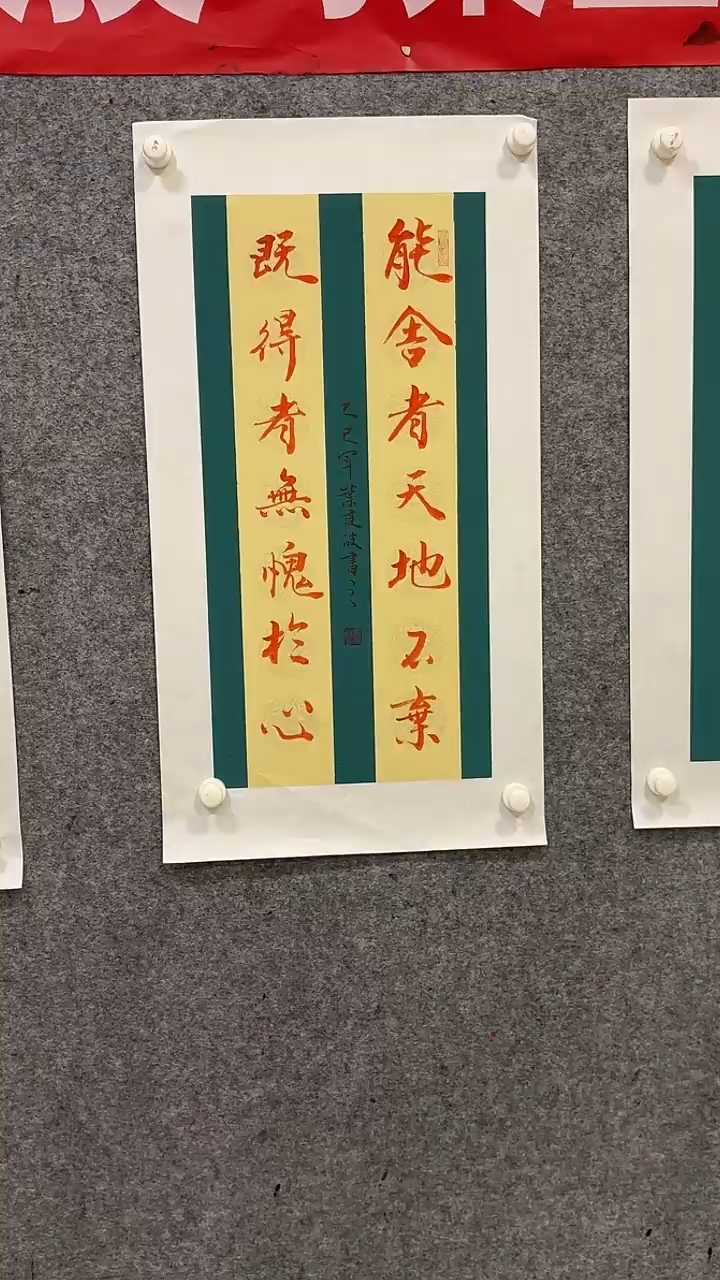 能舍者天地不棄
既得者無愧於心
乙巳年葉建波書